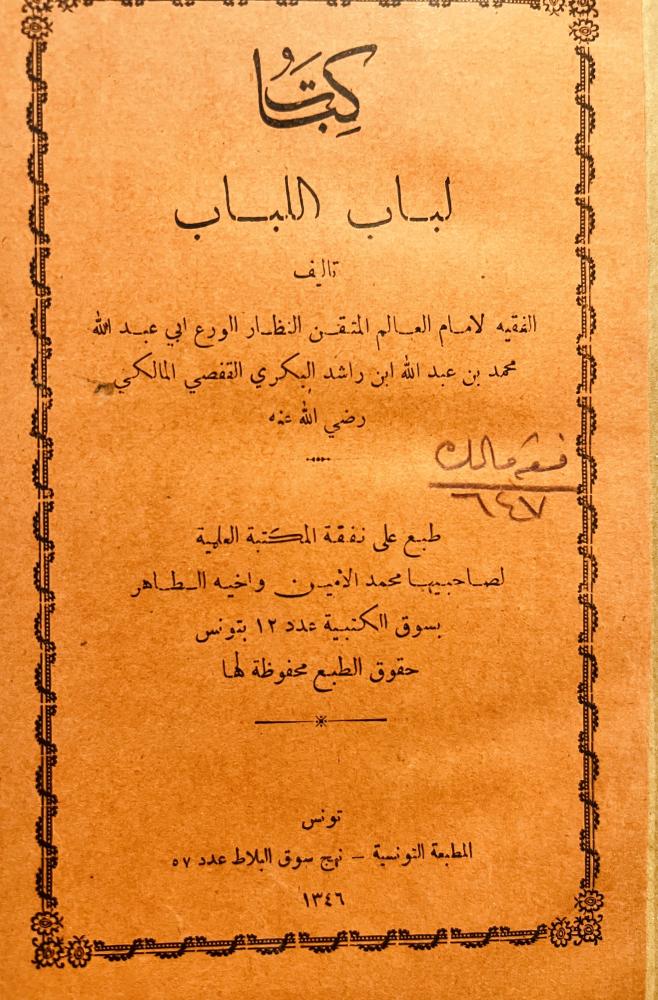 كتاب
لباب اللباب
تاليف
الفقيه لامام العالم المتقن النظار الورع ابي عبد الله
محمد بن عبد الله ابن راشد البكري القفصي المالكي
رضي الله عنه
فقه مالك
٦٤٧
طبع على نفقة المكتبة العلمية
لصاحبيها محمد الأمين واخيه الطاهر
بسوق الكتبية عدد ١٢ بتونس
حقوق الطبع محفوظة لها
تونس
المطبعة التونسية – نهج سوق البلاط عدد ٥٧
١٣٤٦